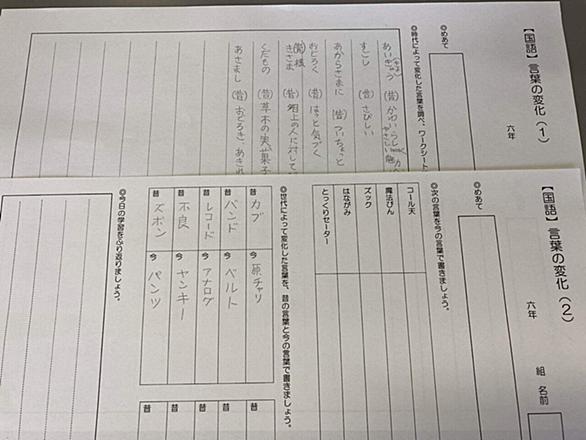 【国語】言葉の変化(1)
六年
◎めあて
◎時代によって変化した言葉を調べ、ワークシート
あいきょう (昔) かわいらしい
すごし (昔) さびしい
あからさまに (昔) ついちょっと
おどろく (昔) はっと気づく
きさま (昔) 目上の人に対して
くだもの (昔) 草木の実 菓子
あさまし (昔) おどろき、あきれ
【国語】言葉の変化(2)
六年 組 名前
◎めあて
◎次の言葉を今の言葉で書きましょう。
コール天
魔法びん
ズック
はながみ
とっくりセーター
◎世代によって変化した言葉を、昔の言葉と今の言葉で書きましょう。
昔 カブ 今 原チャリ
昔 バンド 今 ベルト
昔 レコード 今 アナログ
昔 不良 今 ヤンキー
昔 ズボン 今 パンツ
昔
昔
昔
昔
昔
◎今日の学習をふり返りましょう。